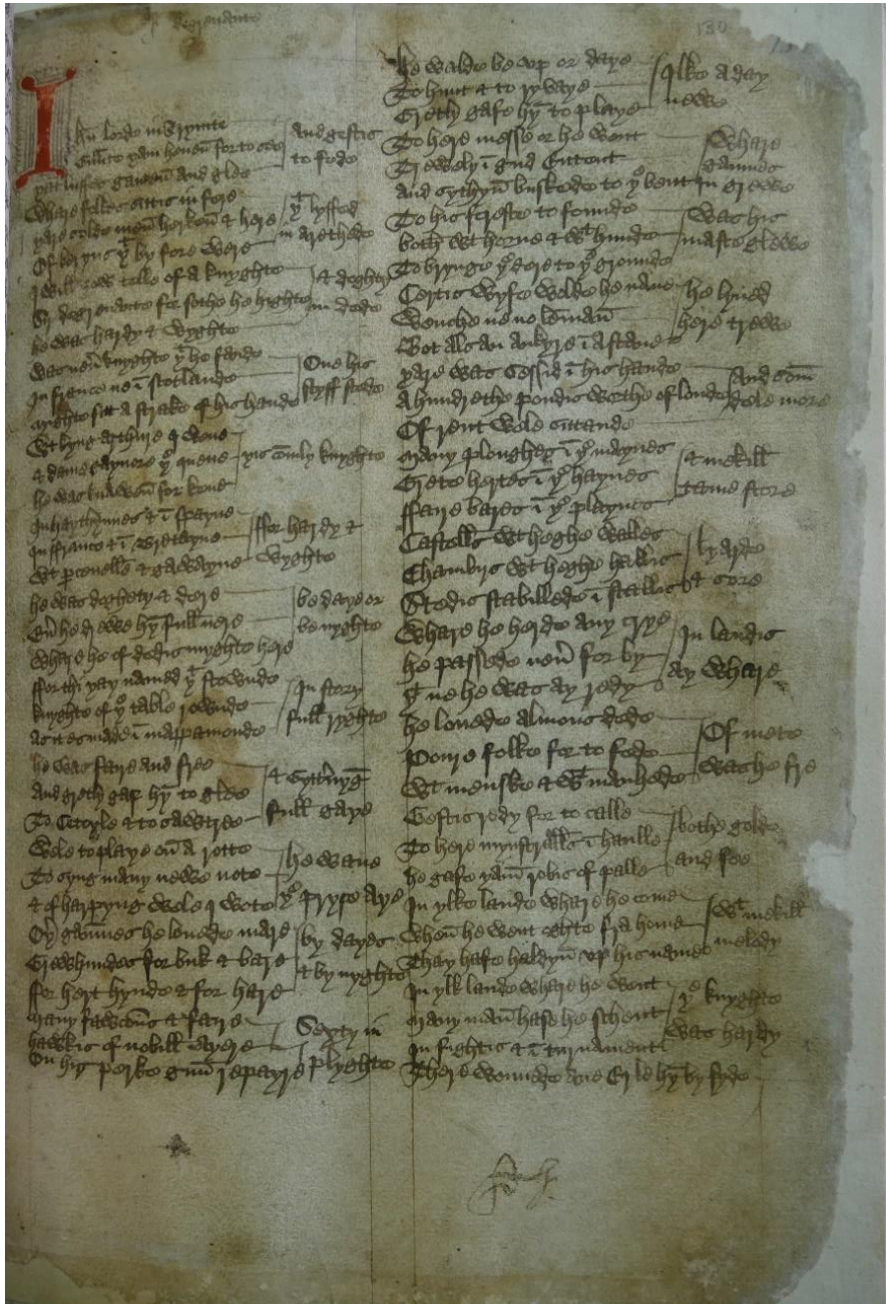 degrevante
130
Ihu lorde in Trynite
Graunte yam heuen for to see
yat luffes gamen and glee
and gestis
to fede
Whare folkes sittis in fere
yare solde men herken & here
Of beryns yt by fore were
yt lyffed
in arethede
I will yow telle of a knyghte
Sr degreuante for sothe he highte
he was hardy & wyghte
& doghty
in dede
was neuer knyghte yt he fande
In france ne ī scotlande
myghte sitt a strake of his hande
One his
styff stede
Wt kyng arthure I wene
& dame Gaynore ye quene
he was knawen for kene
yis comly knyghte
In haythynnes & ī spayne
In france & ī Bretayne
Wt pceuelle & gawayne
ffor hardy &
wyghte
he was doghety & dere
he drewe hȳ full nere
Whare he of dedis myghte here
be daye or
be nyghte
ffor thi yay named yt stownde
knyghte of ye table rownde
As it es made ī mappamonde
In story
full ryghte
he was faire and free
And greth gaf hȳ to glee
To Cetoyle & to sawtree
& gyternyg
full gaye
Wele to playe on a rotte
To syng many newe note
& of harpyng wele I wote
he wane
ye pryse aye
Oyer gammes he louede mare
Grewhundes for buk & bare
ffor hert hynde & for hare
by dayes
& by nyghte
Many fawcons & faire
hawkis of nobill ayere
On his perke gun repayre
Sexty in
plyghte
he walde be vp or daye
To hunt & to ryvaye
Greth gafe hȳ to playe
Ilke a day
newe
To here messe or he went
Trewely ī gud entent
And sythyn buskede to ye bent
Whare
gammes
in grewe
To his foreste to founde
both wt horne & wt hunde
To brynge ye dere to ye grounde
Was his
maste glewe
Certis wyfe wolde he nane
Wenche ne no lēman
Bot als an ankyre ī a stane
he lyued
here trewe
yare was sessid ī his hande
A hundrethe pondis worthe of londe
Of rent wele sittande
And som
dele more
Many ploughes ī ye maynes
Grete hertes ī ye haynes
ffaire bares ī ye playnes
& mekill
tame store
Castells wt heghe walles
Chambirs wt heghe halles
Stedis stabillede ī stallis
lyarde
& sore
Whare he herde any crye
he passede neuer for by
he was ay redy
In landis
ay whare
he louede almous dede
Poure folke for to fede
Wt menske & wt manhede
Of mete
was he fre
Gestis redy for to calle
To here mynstralls ī haulle
he gafe yam robis of palle
bothe golde
and fee
In ylke lande whare he come
When he went oghte fra home
Thay hafe haldyn vp his name
Wt mekill
melody
In ylk lande whare he went
Many man hase he schent
In fightis & ī turnament
ye knyghte
was hardy
There wonnede ane Erle hȳ by syde